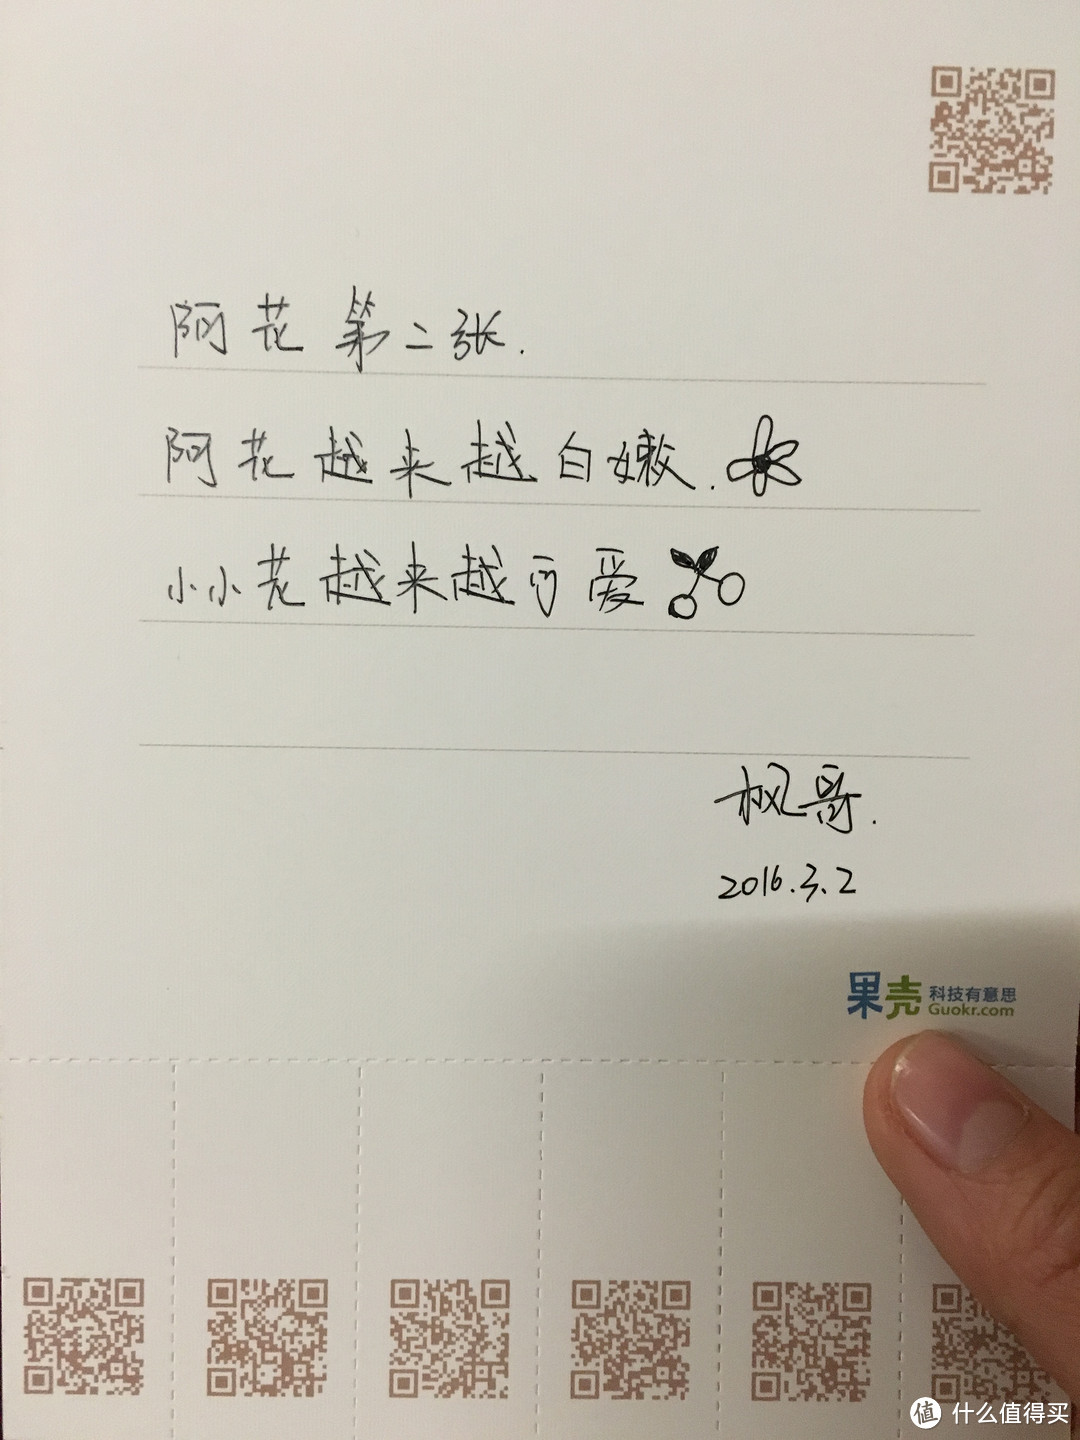 阿花第二张.
阿花越来越白嫩.
小小花越来越可爱
枫哥.
2016.3.2
果壳 科技有意思
Guokr.com
值 什么值得买